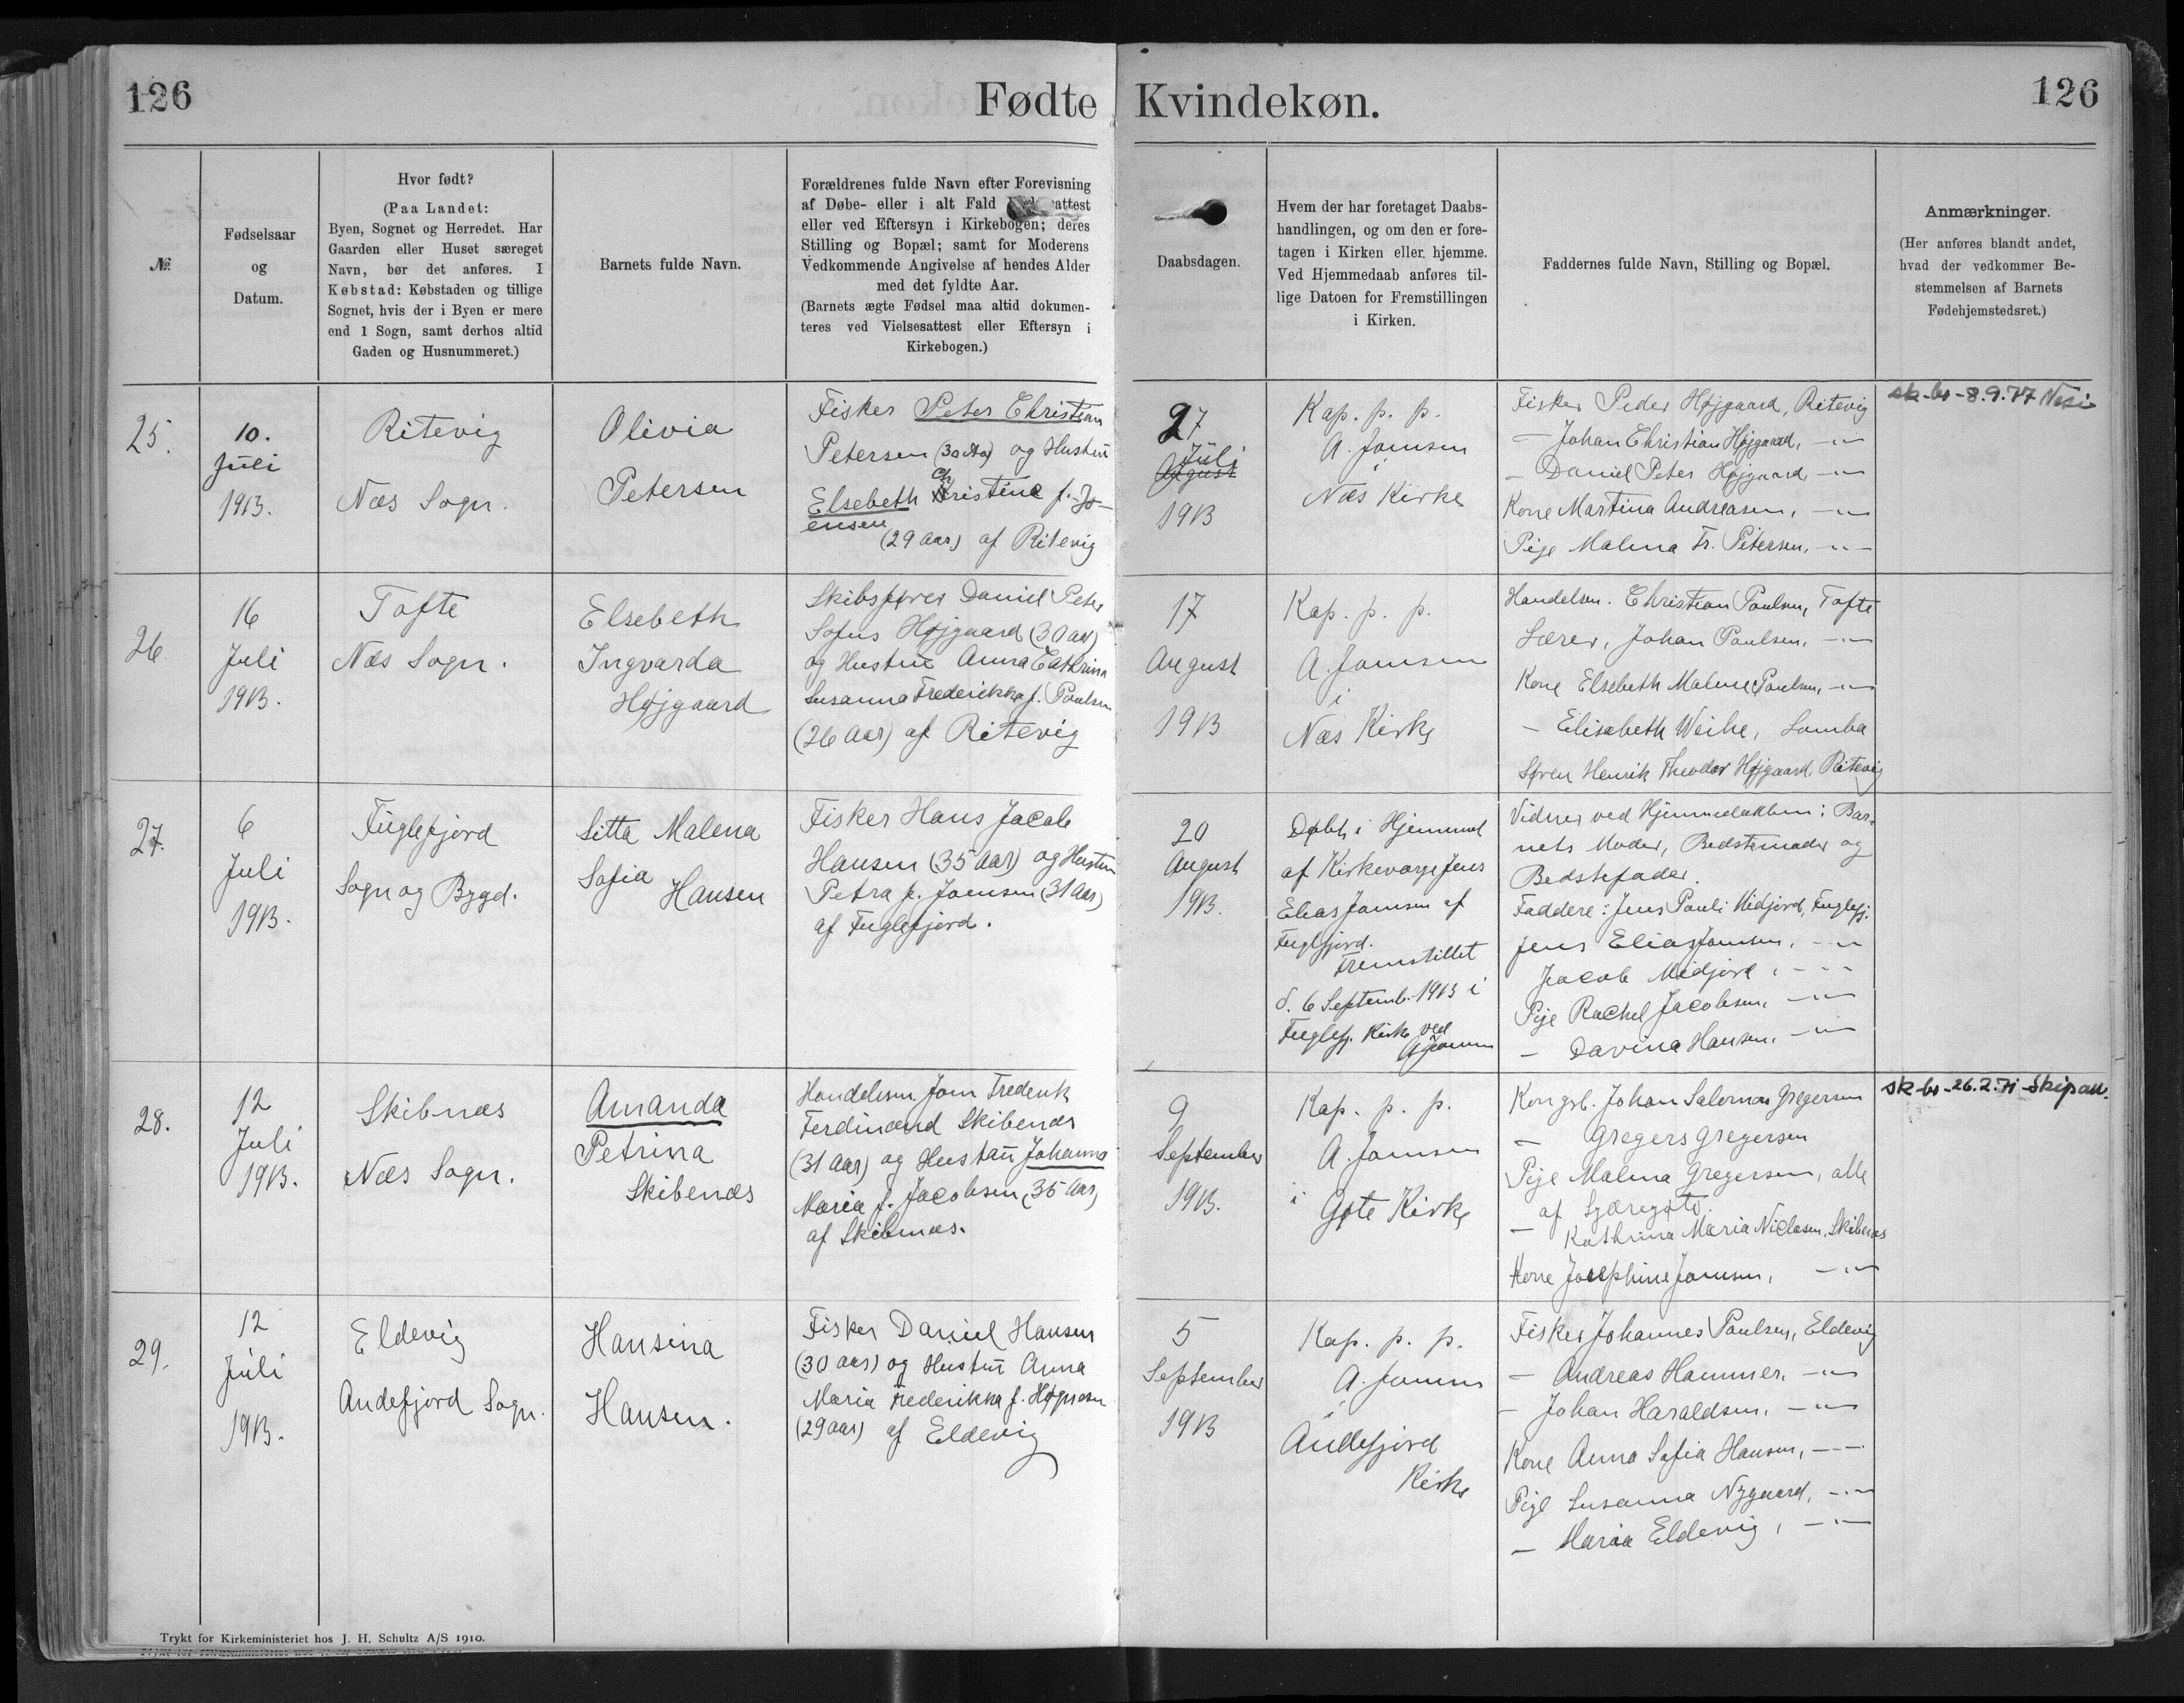 126
Fødte
Kvindekøn.
126
№
Fødselsaar
og
Datum.
Hvor født?
(Paa Landet:
Byen, Sognet og Herredet. Har
Gaarden eller Huset særeget
Navn, bør det anføres. I
Købstad: Købstaden og tillige
Sognet, hvis der i Byen er mere
end 1 Sogn, samt derhos altid
Gaden og Husnummeret.)
Barnets fulde Navn.
Forældrenes fulde Navn efter Forevisning
af Døbe- eller i alt Fald attest
eller ved Eftersyn i Kirkebogen; deres
Stilling og Bopæl; samt for Moderens
Vedkommende Angivelse af hendes Alder
med det fyldte Aar.
(Barnets ægte Fødsel maa altid dokumen-
teres ved Vielsesattest eller Eftersyn i
Kirkebogen.)
Daabsdagen.
Hvem der har foretaget Daabs-
handlingen, og om den er fore-
tagen i Kirken eller hjemme.
Ved Hjemmedaab anføres til-
lige Datoen for Fremstillingen
i Kirken.
Faddernes fulde Navn, Stilling og Bopæl.
Anmærkninger.
(Her anføres blandt andet,
hvad der vedkommer Be-
stemmelsen af Barnets
Fødehjemstedsret.)
25.
10.
Juli
1913.
Ritevig
Næs Sogn.
Olivia
Petersen
Fisker Peter Christian
Petersen (30 Aar) og Hustru
Elsebeth Christine f. Jo-
ensen
(29 Aar) af Ritevig
27
Juli
August
1913
Kap. p. p.
A. Joensen
i
Næs Kirke
Fisker Peder Højgaard, Ritevig
— Johan Christian Højgaard, —"—
— Daniel Peter Højgaard —"—
Kone Martina Andreasen, —"—
Pige Malena Fr. Petersen, —"—
sk-br-8.9.77 Nesi
26
16
Juli
1913.
Tofte
Næs Sogn.
Elsebeth
Ingvarda
Højgaard
Skibsfører Daniel Peter
Sofus Højgaard (30 Aar)
og Hustru Anna Cathrina
Susanna Frederikka f. Poulsen
(26 Aar) af Ritevig
17
August
1913
Kap. p. p.
A. Joensen
i
Næs Kirke
Handelsm. Christian Poulsen, Tofte
Lærer, Johan Poulsen, —"—
Kone Elsebeth Malene Poulsen, —"—
— Elisabeth Weihe, Lamba
Søren Henrik Theodor Højgaard, Ritevig
27.
6
Juli
1913.
Fuglefjord
Sogn og Bygd.
Sitta Malena
Sofia
Hansen
Fisker Hans Jacob
Hansen (35 Aar) og Hustru
Petra f. Joensen (31 Aar)
af Fuglefjord.
20
August
1913.
Døbt i Hjemmet
af Kirkeværge Jens
Elias Joensen af
Fuglefjord.
Fremstillet
d. 6 Septemb. 1913 i
Fuglefj. Kirke ved
A Joensen
Vidner ved Hjemmedaaben: Bar-
nets Moder, Bedstemoder og
Bedstefader.
Faddere: Jens Pauli Midjord, Fuglefj.
Jens Elias Joensen, —"—
Jacob Midjord, —"—
Pige Rachel Jacobsen, —"—
— Davina Hansen, —"—
28.
12
Juli
1913.
Skibnæs
Næs Sogn.
Amanda
Petrina
Skibenæs
Handelsm. Joen Frederik
Ferdinand Skibenæs
(31 Aar) og Hustru Johanna
Maria f. Jacobsen (35 Aar)
af Skibnæs.
9
September
1913.
Kap. p. p.
A. Joensen
i Gøte Kirke
Kongsb. Johan Salomon Gregersen
— Gregers Gregersen
Pige Malena Gregersen, alle
af Syoregøte.
— Kathrina Maria Niclasen, Skibenæs
Kone Josephine Joensen, —"—
sk-br-26.2.71 Skipan.
29.
12
Juli
1913.
Eldevig
Andefjord Sogn.
Hansina
Hansen.
Fisker Daniel Hansen
(30 aar) og Hustru Anna
Maria Frederikka f.
(29 aar) af Eldevig
5
September
1913
Kap. p. p.
A. Joensen
i
Andefjord
Kirke
Fisker Johannes Poulsen, Eldevig
— Andreas Hammer, —"—
— Johan Haraldsen, —"—
Kone Anna Sofia Hansen, —"—
Pige Susanna Nygaard, —"—
— Maria Eldevig, —"—
Trykt for Kirkeministeriet hos J. H. Schultz A/S 1910.